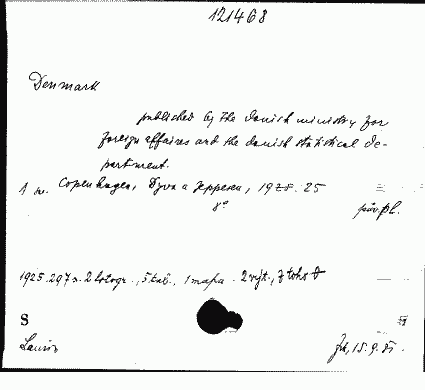 121468
Denmark
published by the danish ministry for
foreign affaires and the danish statistical de-
partment.
1 sv. Copenhagen, Dyva a Jeppesen, 1925
8°
pův. pl.
1925. 297 s. 2 fotogr., 5 tab., 1 mapa. 2 výt., z toho
S
15.9.